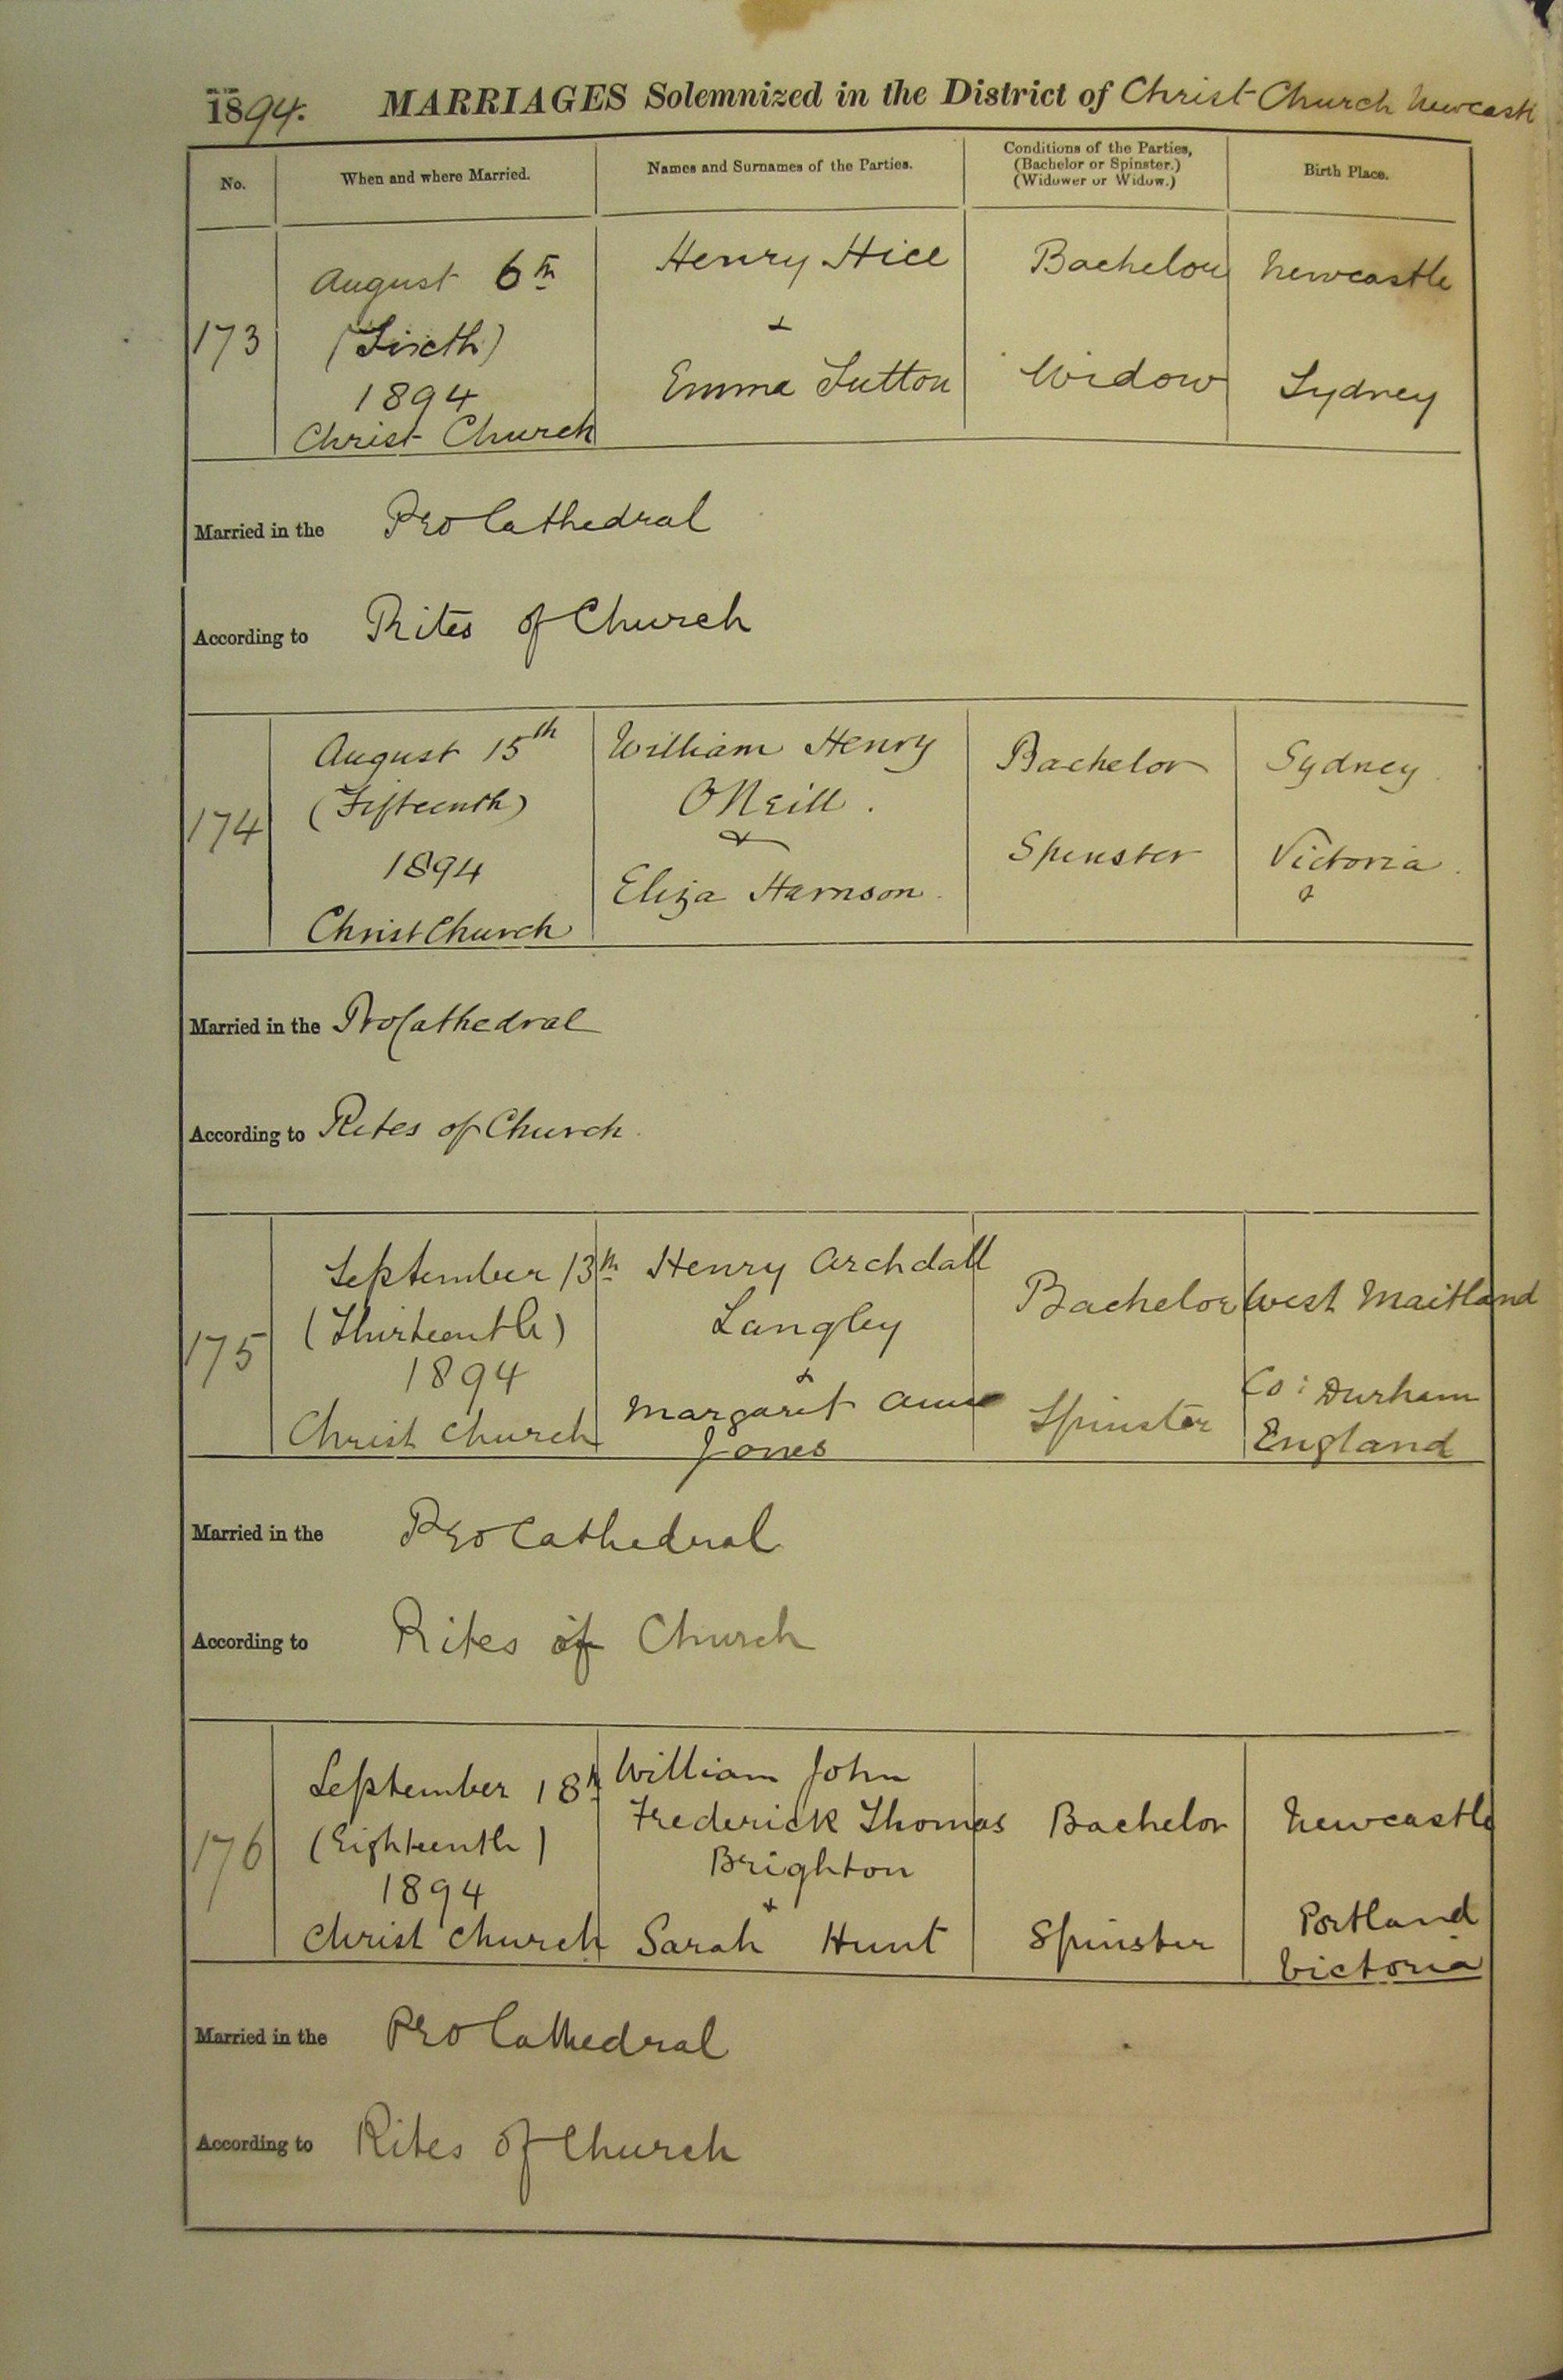 1894. MARRIAGES Solemnized in the District of Christ Church Newcastle
No. When and where Married. Names and Surnames of the Parties. Conditions of the Parties, (Bachelor or Spinster.) (Widower or Widow.) Birth Place.
August 6th Henry Hill Bachelor Newcastle
173 (Sixth) &
1894 Emma Sutton Widow Sydney
Christ Church
Married in the Pro Cathedral
According to Rites of Church
August 15th William Henry Bachelor Sydney
(Fifteenth) O'Neill.
174 &
1894 Eliza Harrison. Spinster Victoria.
Christ Church
Married in the ProCathedral
According to Rites of Church.
September 13th Henry Archdall Bachelor West Maitland
(Thirteenth) Langley
175 &
1894 Margaret Anne Spinster Co: Durham
Christ Church Jones England
Married in the Pro Cathedral
According to Rites of Church
September 18th William John
(Eighteenth) Frederick Thomas Bachelor Newcastle
176 Brighton
1894 & Portland
Christ Church Sarah Hunt Spinster Victoria
Married in the Pro Cathedral
According to Rites of Church